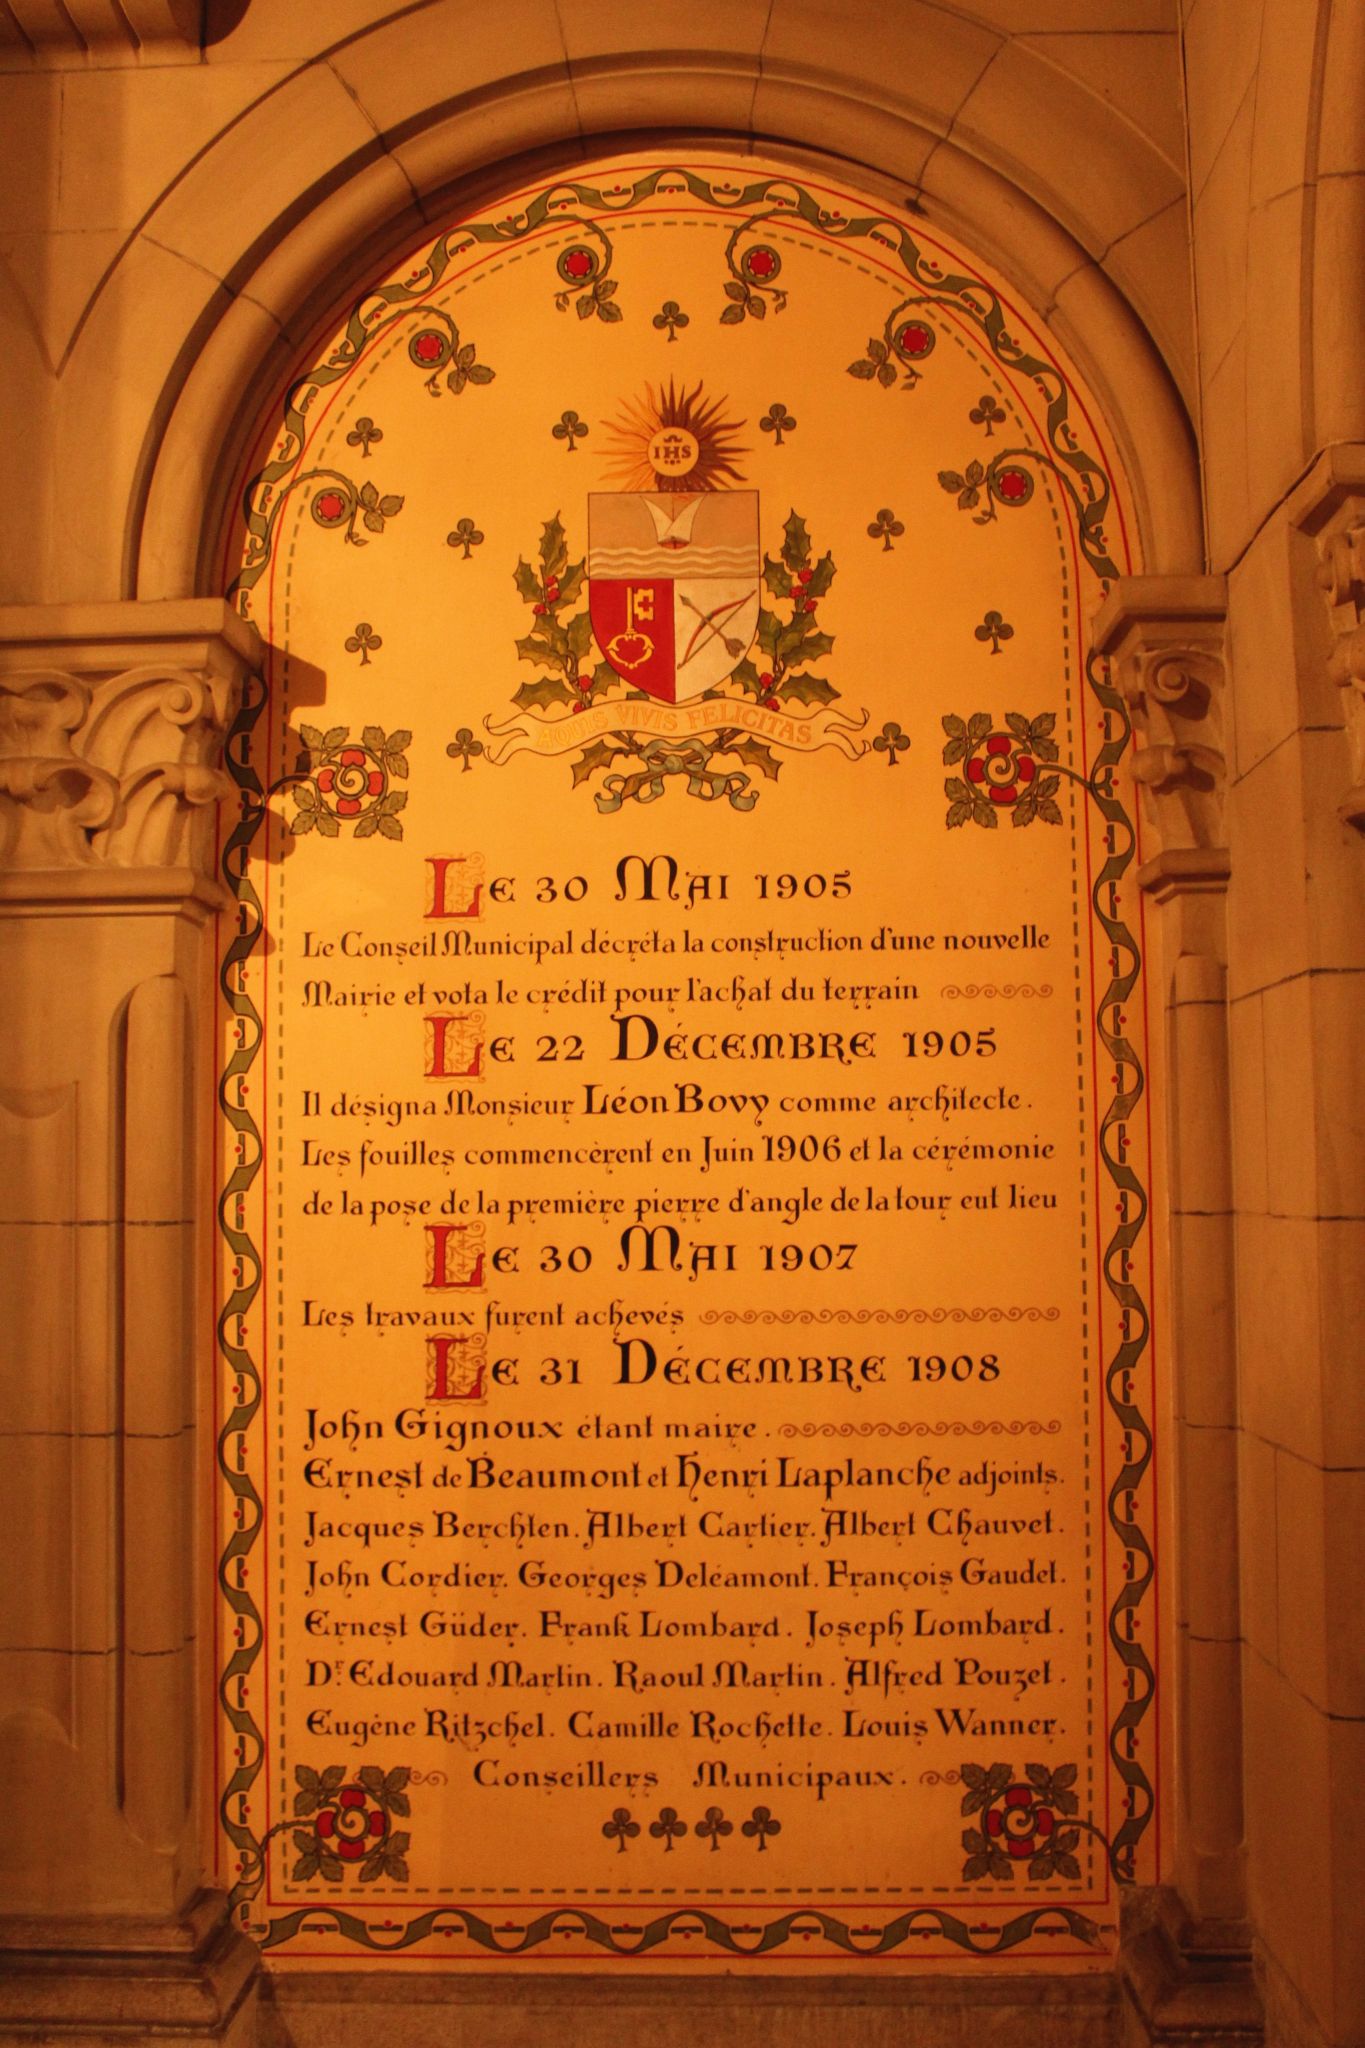 IHS
AQUIS VIVIS FELICITAS
LE 30 MAI 1905
Le Conseil Municipal décréta la construction d'une nouvelle
Mairie et vota le crédit pour l'achat du terrain
LE 22 DÉCEMBRE 1905
Il désigna Monsieur Léon Bovy comme architecte.
Les fouilles commencèrent en Juin 1906 et la cérémonie
de la pose de la première pierre d'angle de la tour eut lieu
LE 30 MAI 1907
Les travaux furent achevés
LE 31 DÉCEMBRE 1908
John Gignoux étant maire.
Ernest de Beaumont et Henri Laplanche adjoints.
Jacques Berchten. Albert Cartier. Albert Chauvet.
John Cordier. Georges Deléamont. François Gaudet.
Ernest Güder. Frank Lombard. Joseph Lombard.
Dr. Edouard Martin. Raoul Martin. Alfred Pouzet.
Eugène Ritzchel. Camille Rochette. Louis Wanner.
Conseillers Municipaux.